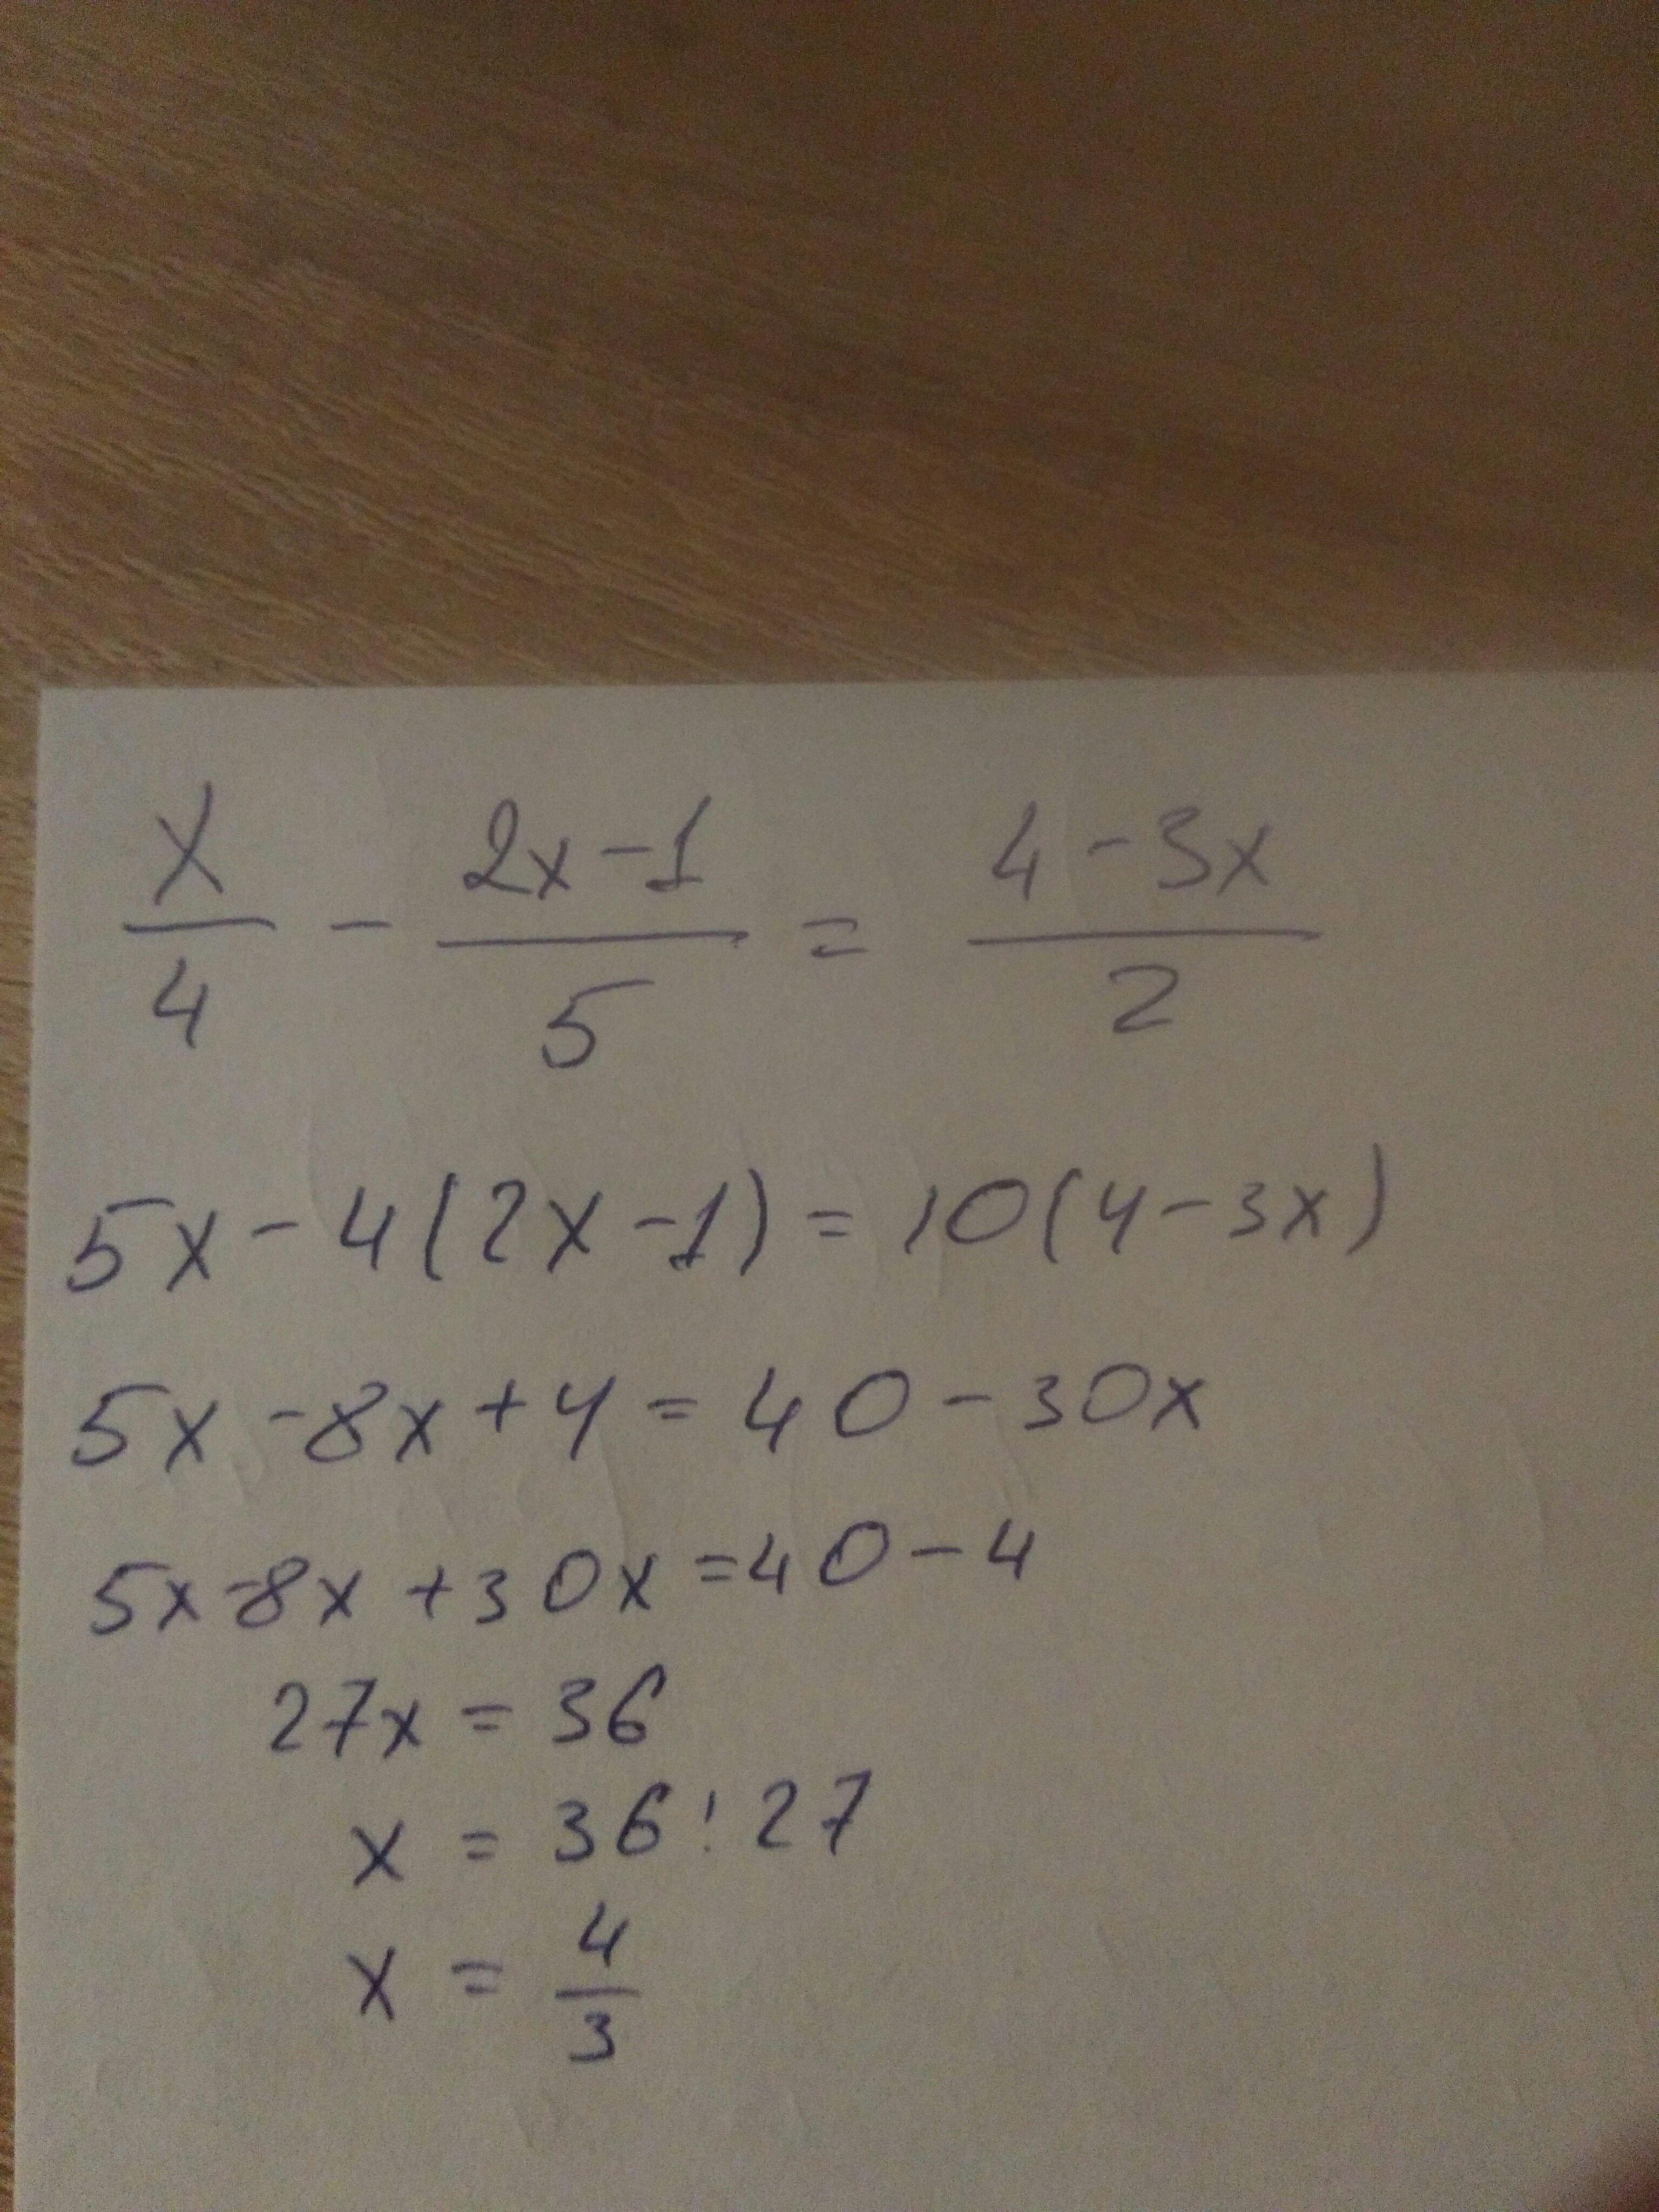 x/4 - (2x-1)/5 = (4-3x)/2
5x - 4(2x-1) = 10(4-3x)
5x - 8x + 4 = 40 - 30x
5x - 8x + 30x = 40 - 4
27x = 36
x = 36 : 27
x = 4/3